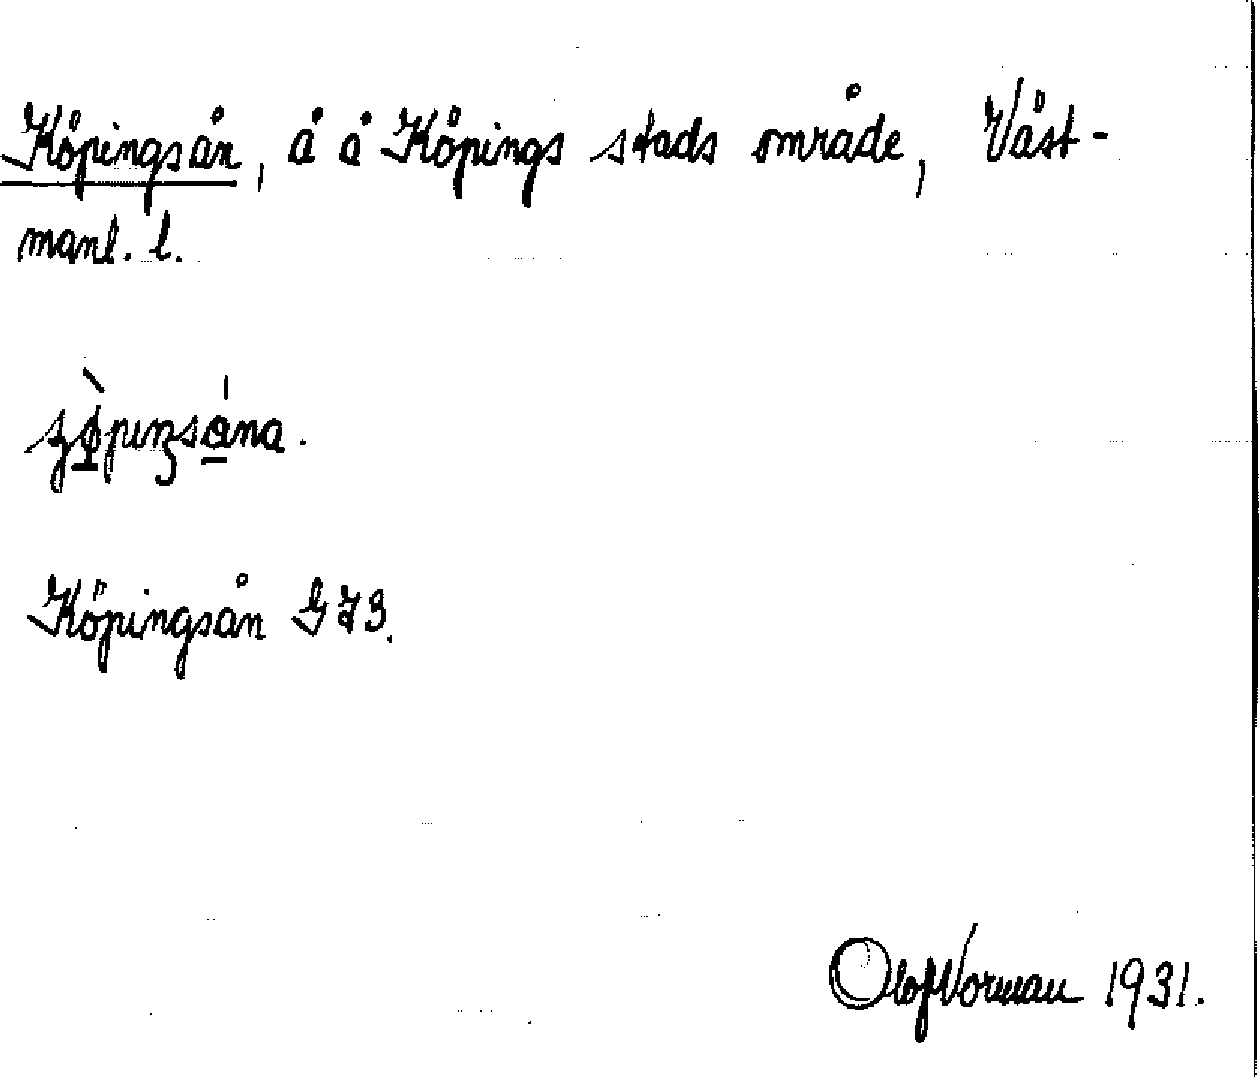 Köpingsån, å å Köpings stads område, Väst-
manl. l.
Köpingsån G 73.
Olof Norman 1931.